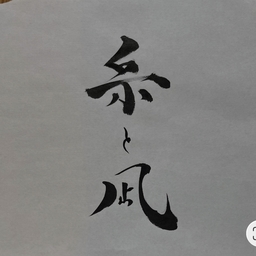 糸と凪